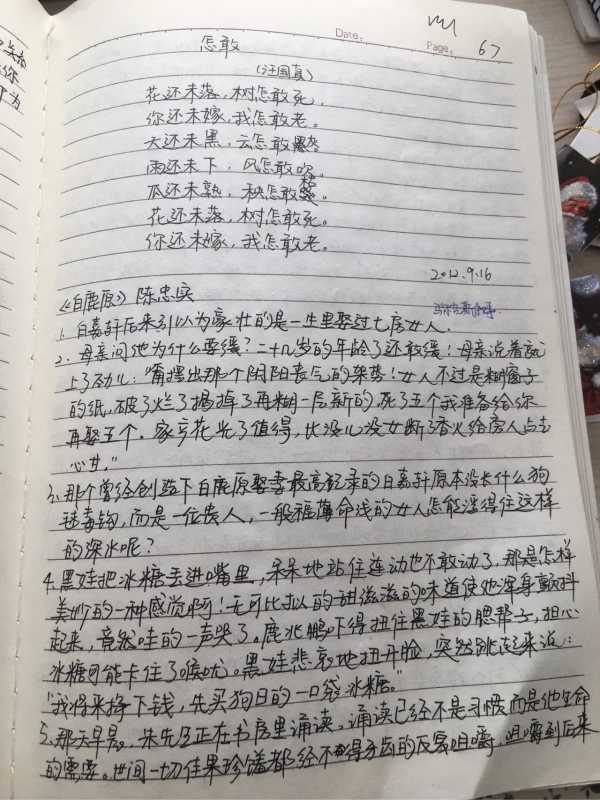 Date:
Page: 67
怎敢
(汪国真)
花还未落,树怎敢死。
你还未嫁,我怎敢老。
天还未黑,云怎敢
雨还未下,风怎敢
瓜还未熟,秧怎敢
花还未落,树怎敢死。
你还未嫁,我怎敢老。
2012.9.16
《白鹿原》陈忠实
1. 白嘉轩后来引以为豪壮的是一生里娶过七房女人.
2. 母亲问他为什么要缓?二十几岁的年龄了还敢缓!母亲说着就
上了劲儿:"甭摆出那个阴阳丧气的架势!女人不过是糊窗子
的纸,破了烂了揭掉了再糊一层新的,死了五个我准备给你
再娶五个.家产花光了值得,比没儿没女断了香火给旁人占去
心甘。"
3. 那个曾经创造下白鹿原娶妻最高纪录的白嘉轩原本没长什么狗
毬毒钩,而是一位贵人,一般福薄命浅的女人怎能浮得住这样
的深水呢?
4. 黑娃把冰糖丢进嘴里,呆呆地站住连动也不敢动了,那是怎样
美妙的一种感觉啊!无可比拟的甜滋滋的味道使他浑身颤抖
起来,竟然哇的一声哭了。鹿兆鹏吓得扭住黑娃的腮帮子,担心
冰糖可能卡住了喉咙。黑娃悲哀地扭开脸,突然跳起来说:
"我将来挣下钱,先买狗日的一口袋冰糖。"
5. 那天早晨,朱先生正在书房里诵读,诵读已经不是习惯而是他生命
的需要。世间一切佳果珍馐都经不得牙齿的反复咀嚼,咀嚼到后来